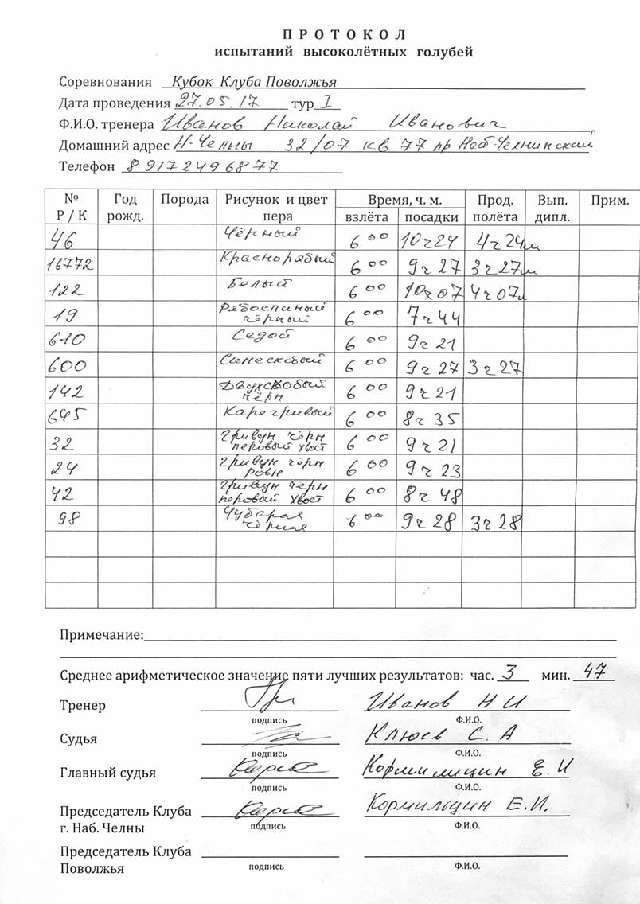 ПРОТОКОЛ
испытаний высоколётных голубей
Соревнования Кубок Клуба Поволжья
Дата проведения 27.05.17 тур I
Ф.И.О. тренера Иванов Николай Иванович
Домашний адрес Н-Челны 32/07 кв 77 пр Наб-Челнинский
Телефон 89172496877
№ Р / К Год рожд. Порода Рисунок и цвет пера Время, ч. м. взлёта посадки Прод. полёта Вып. дипл. Прим.
46 Чёрный 6 00 10 ч 24 4 ч 24 м
16772 Красnорябый 6 00 9 ч 27 3 ч 27 м
122 Белый 6 00 10 ч 07 4 ч 07 м
19 чёрный 6 00 7 ч 44
610 Седой 6 00 9 ч 21
600 6 00 9 ч 27 3 ч 27
142 чёрн 6 00 9 ч 21
645 Карогривый 6 00 8 ч 35
32 Гривун чёрн перовый хвост 6 00 9 ч 21
24 Гривун чёрн 6 00 9 ч 23
42 Гривун черн перовый хвост 6 00 8 ч 48
98 Чубарая чёрная 6 00 9 ч 28 3 ч 28
Примечание:
Среднее арифметическое значение пяти лучших результатов: час. 3 мин. 47
Тренер Иванов Н И
подпись Ф.И.О.
Судья Клюев С. А
подпись Ф.И.О.
Главный судья Кормильцин Е. И
подпись Ф.И.О.
Председатель Клуба
г. Наб. Челны Кормильцин Е.И.
подпись Ф.И.О.
Председатель Клуба
Поволжья
подпись Ф.И.О.